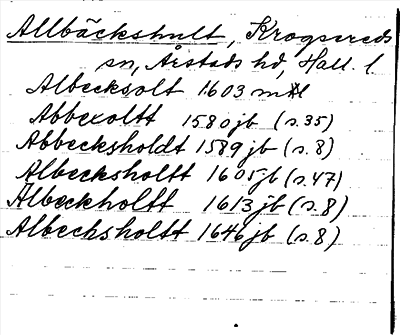 Allbäckshult, Krogsereds
sn, Årstads hd, Hall. l.
Albecksolt 1603 mtl
Abbexoltt 1580 jb (s.35)
Abbecksholdt 1589 jb (s.8)
Albecksholtt 1605 jb (s.47)
Albeckholtt 1613 jb (s.8)
Albechsholtt 1646 jb (s.8)